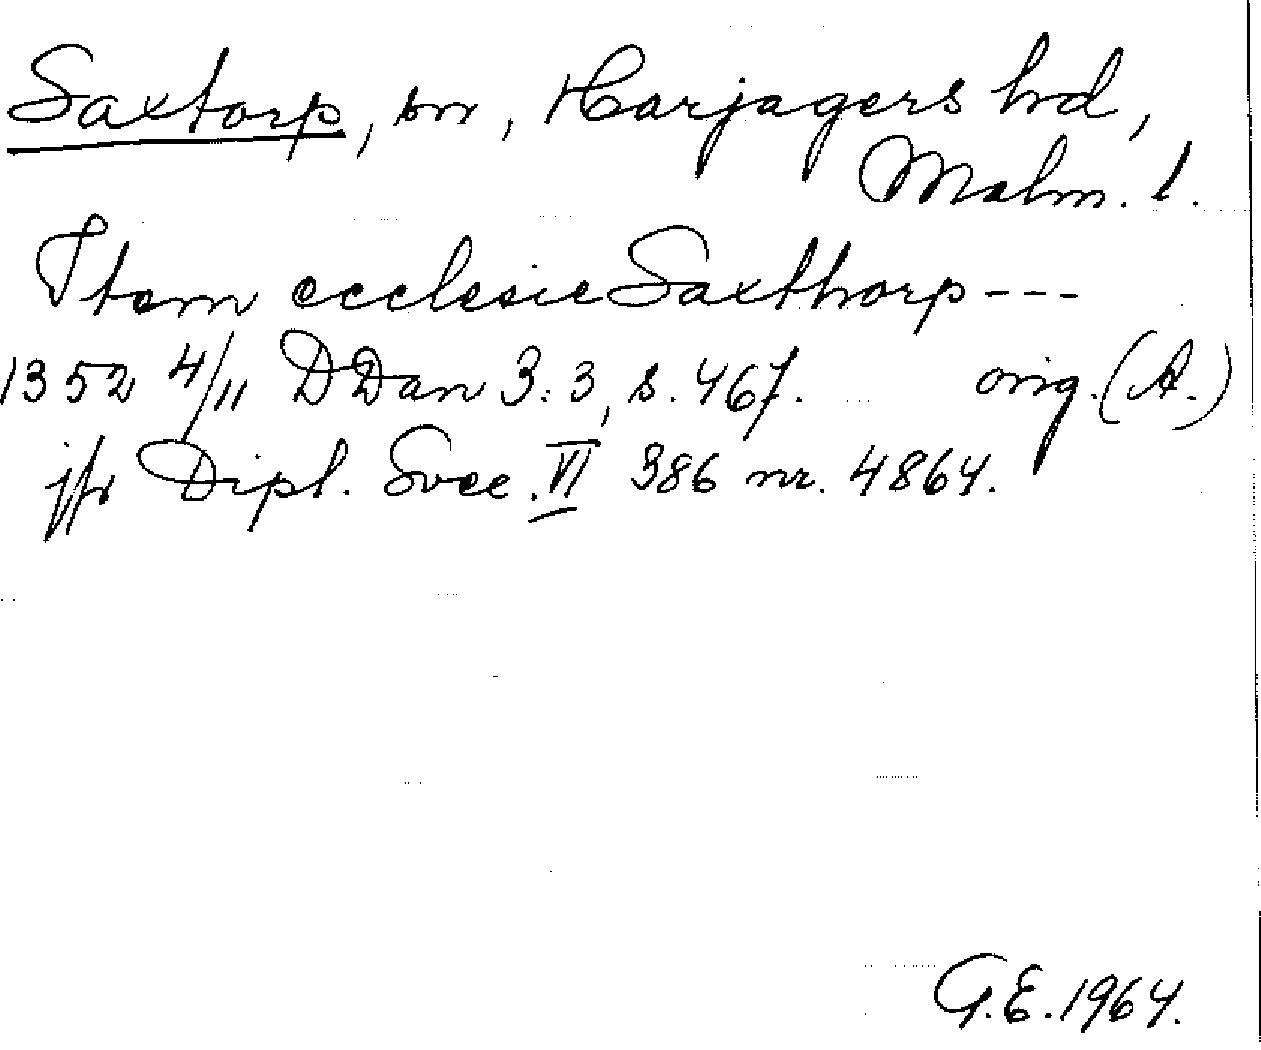 Saxtorp, sn, Harjagers hd,
Malm. l.
Item ecclesie Saxthorp ---
1352 4/11 DDan 3:3, s. 467. orig. (A.)
jfr Dipl. Svec. VI 386 nr. 4864.
G.E. 1964.